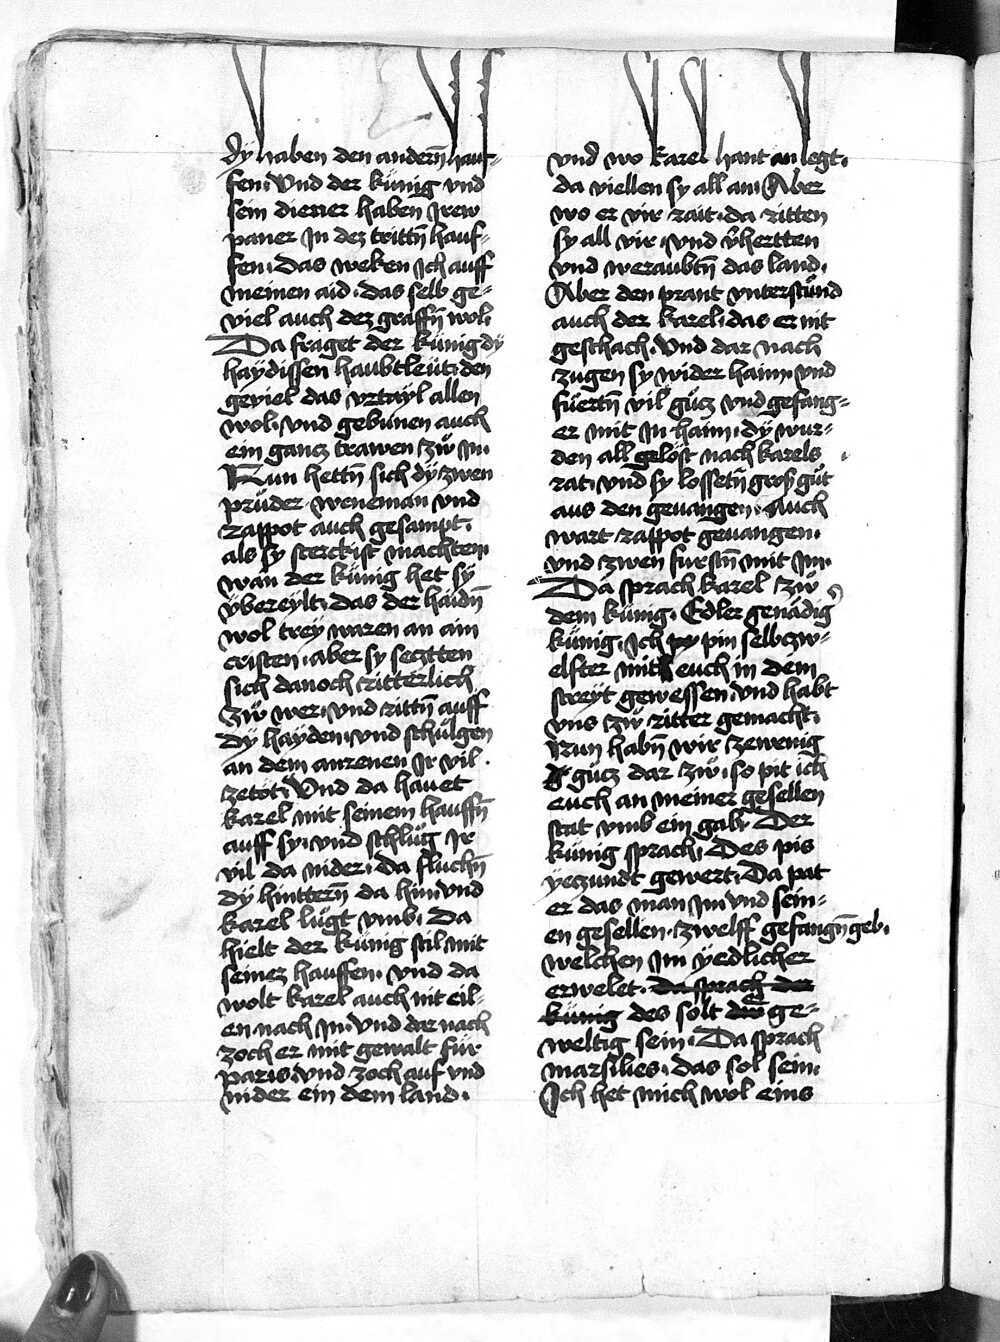 dÿ haben den anderñ hauf-
fen. Vnd der künig vnd
sein diener haben Irew
paner In dez trittñ hauf-
fen. das weken Ich auff
meinen aid. das selb ge-
viel auch dez graffñ wol.
Da fraget der künig dÿ
haÿdissen haubtleüt. den
geviel das vrtaÿl allen
wol. vnd gebunen auch
ein gancz trawen zw̎ In.
Nun hettñ sich dÿ zwen
prüder. weneman vnd
zappot auch gesampt.
als sy sterckist machten.
wan der künig het sÿ
vbereylt. das der haidñ
wol treÿ waren an ain
cristen. aber sy secztten
sich danoch ritterlich
zw̎ wer. vnd rittñ auff
dÿ hayden. vnd schulgen
an dem anrenen Ir vil.
zetöt. Vnd da hauet
karel mit seinem hauffñ
auff sy. vnd schlüg Ir
vil da nider. da fluchñ
dÿ hinterñ da hin. vnd
karel lügt vmb. Da
hielt der künig stil mit
seinez hauffen. vnd da
wolt karel auch nit eil-
en nach In. Vnd dar nach
zoch er mit gewalt für
paris. vnd zoch auf vnd
nider ein dem land.
vnd wo karel hant an legt.
da viellen sy all an. Aber
wo er vir rait. da ritten
sy all vir. vnd v̎hertten
vnd weraubtñ das land.
Aber den prant vnterstünd
auch der karel. das er nit
geschach. Vnd dar nach
zugen sy wider haim. vnd
fürtñ vil gücz vnd gefang-
er mit In haim. dÿ wur-
den all gelöst nach karels
rat. vnd sy lossetñ groß güt
aus den gevangen. Auch
wart zappot gevangen.
vnd zwen fürstñ mit Im.
Da sprach karel zw̎
dem künig. Edler genädig
künig. Ich pin selbczw-
elfter mit euch in dem
streÿt gewessen vnd habt
vns zw̎ ritter gemacht.
Nun habñ wir zewenig
gücz dar zw̎. so pit ich
euch an meiner gesellen
stat vmb ein gab. Der
künig sprach. Des pis
ÿeczundt gewert. Da pat
er das man Im vnd sein-
en gesellen. zwelff gefangñ geb.
welchen Im ÿedlicher
erwelet. da sprach der
künig des solt er ge-
weltig sein. Da sprach
marsilies. das sol sein.
Ich het mich wol eins